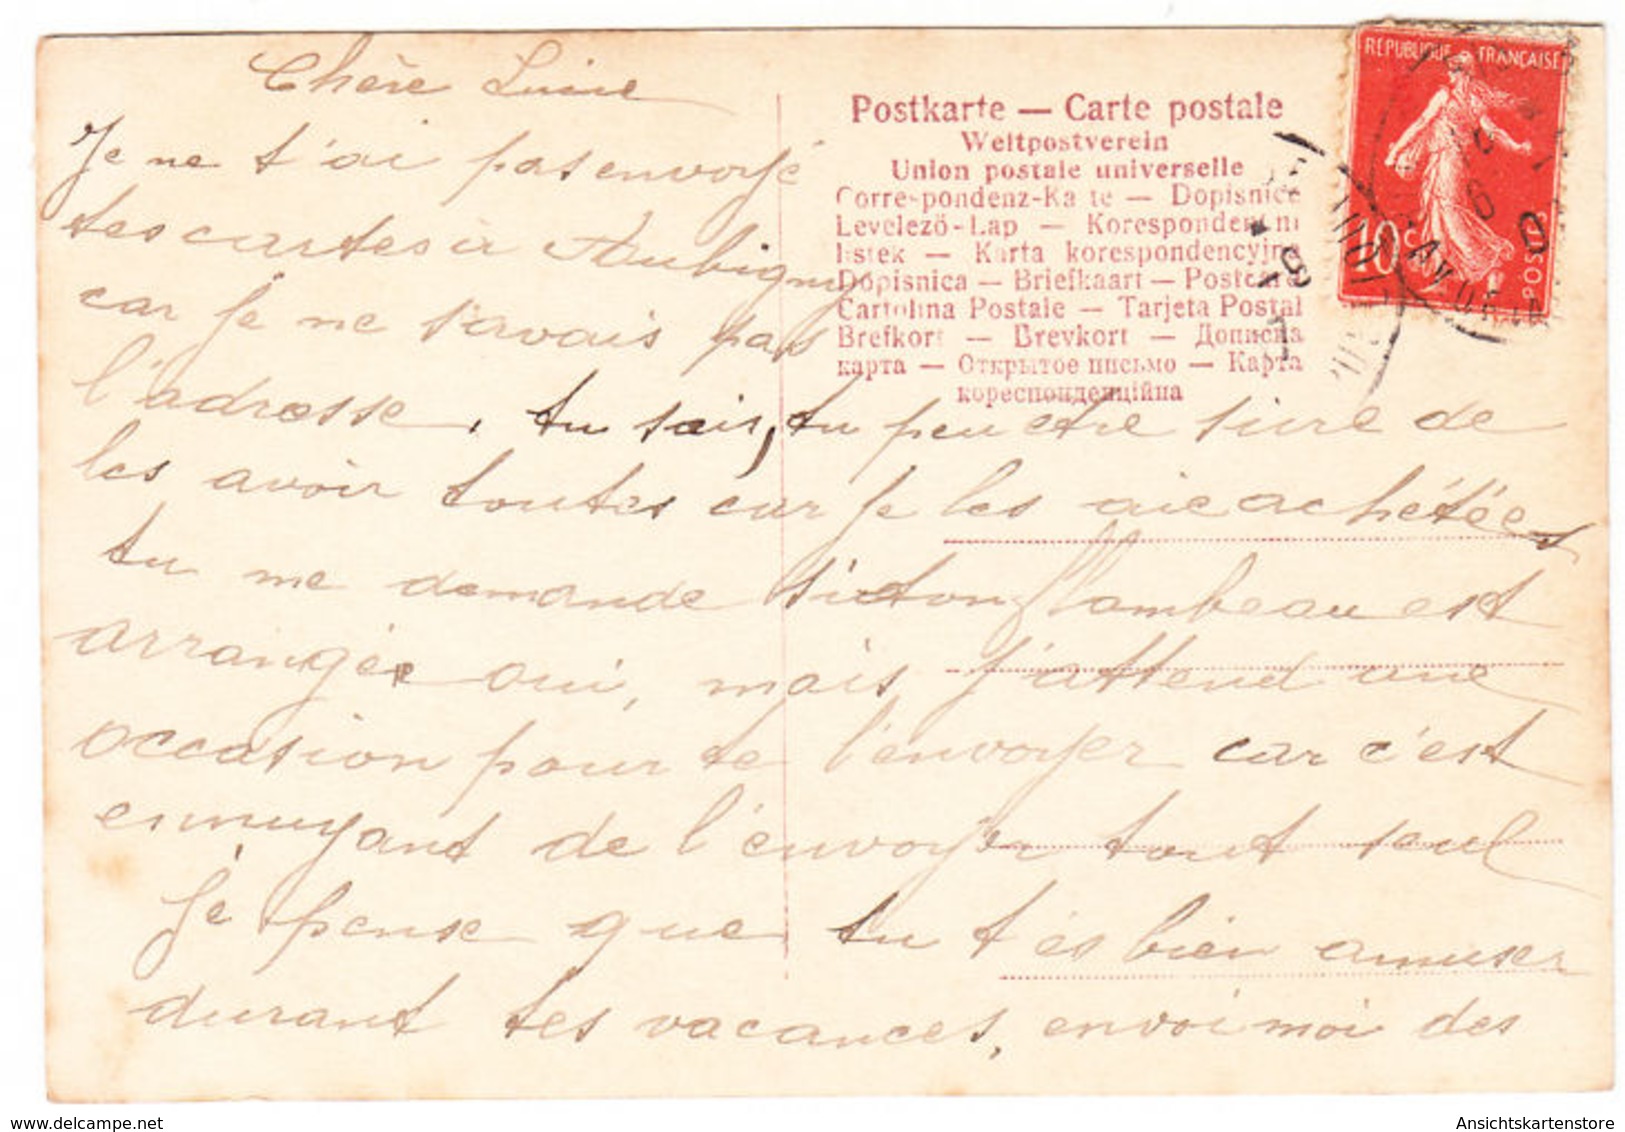 Chère
Je ne t'ai pas envoyé
tes cartes à Aubigny
car je ne savais pas
l'adresse, tu sais, tu peu être sure de
les avoir toutes car je les aie achétées
tu me demande si ton flambeau est
arrangée oui, mais j'attend une
occasion pour te l'envoyer car c'est
ennuyant de l'envoyer tout seul
Je pense que tu t'és bien amuser
durant tes vacances, envoi moi des
Postkarte — Carte postale
Weltpostverein
Union postale universelle
Corre-pondenz-Ka te — Dopisnice
Levelező-Lap — Korespondent ni
listek — Karta korespondencyjna
Dopisnica — Briefkaart — Postcard
Cartolina Postale — Tarjeta Postal
Brefkort — Brevkort — Дописна
карта — Открытое письмо — Карта
кореспонденційна
RÉPUBLIQUE FRANÇAISE
10 c
POSTES
delcampe.net
Ansichtskartenstore